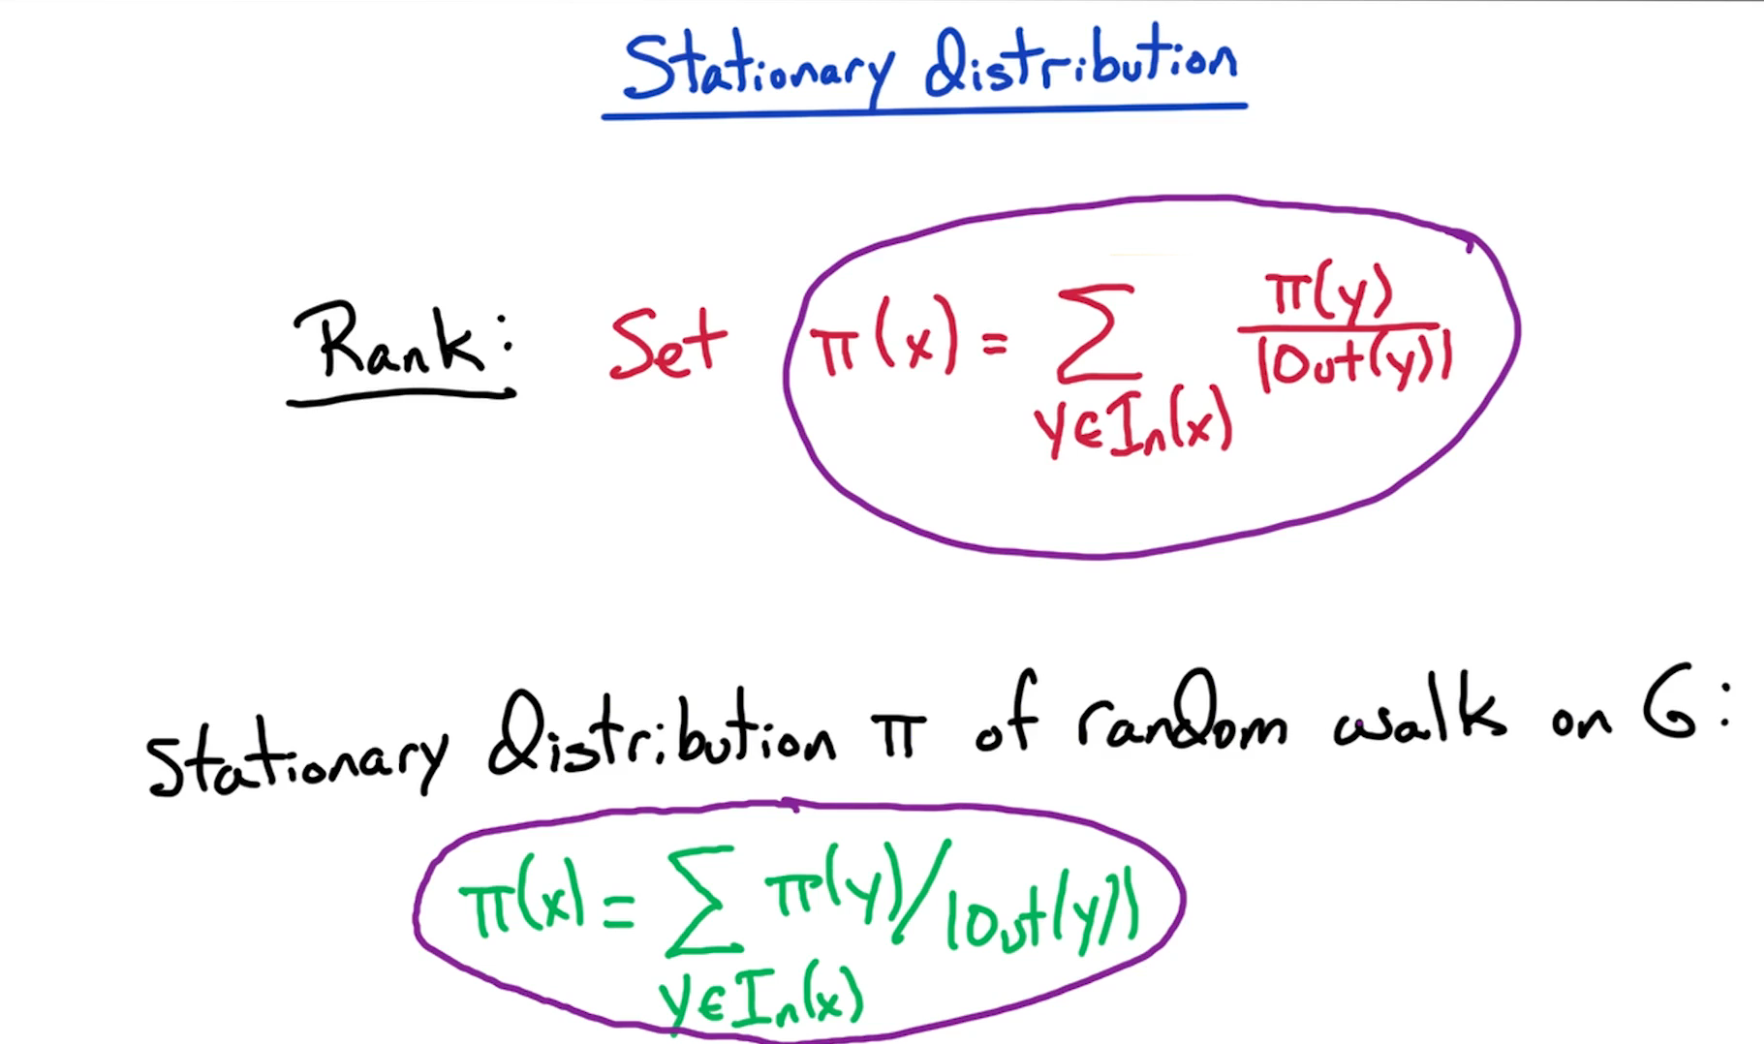 Stationary Distribution
Rank: Set π(x) = ∑ y∈In(x) π(y) / |Out(y)|
Stationary Distribution π of random walk on G:
π(x) = ∑ y∈In(x) π(y)/|Out(y)|